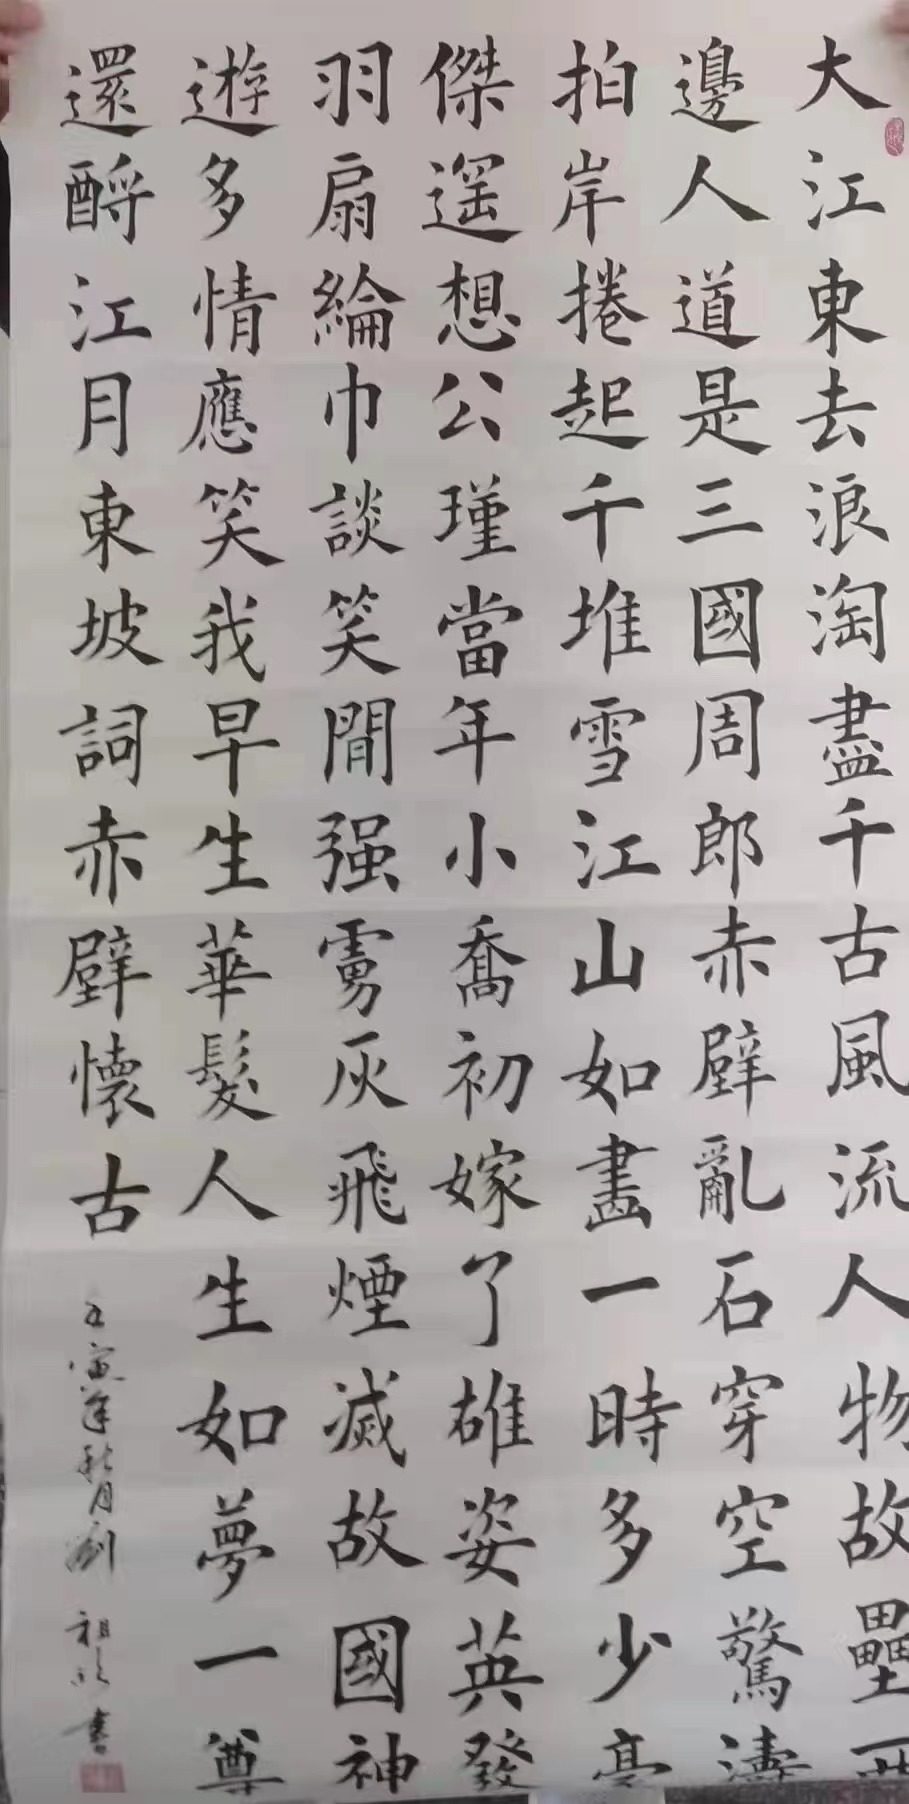 大江東去浪淘盡千古風流人物故壘西
邊人道是三國周郎赤壁亂石穿空驚濤
拍岸捲起千堆雪江山如畫一時多少豪
傑遥想公瑾當年小喬初嫁了雄姿英發
羽扇綸巾談笑間强虜灰飛煙滅故國神
遊多情應笑我早生華髮人生如夢一尊
還酹江月東坡詞赤壁懷古
壬寅年秋月劉祖 書